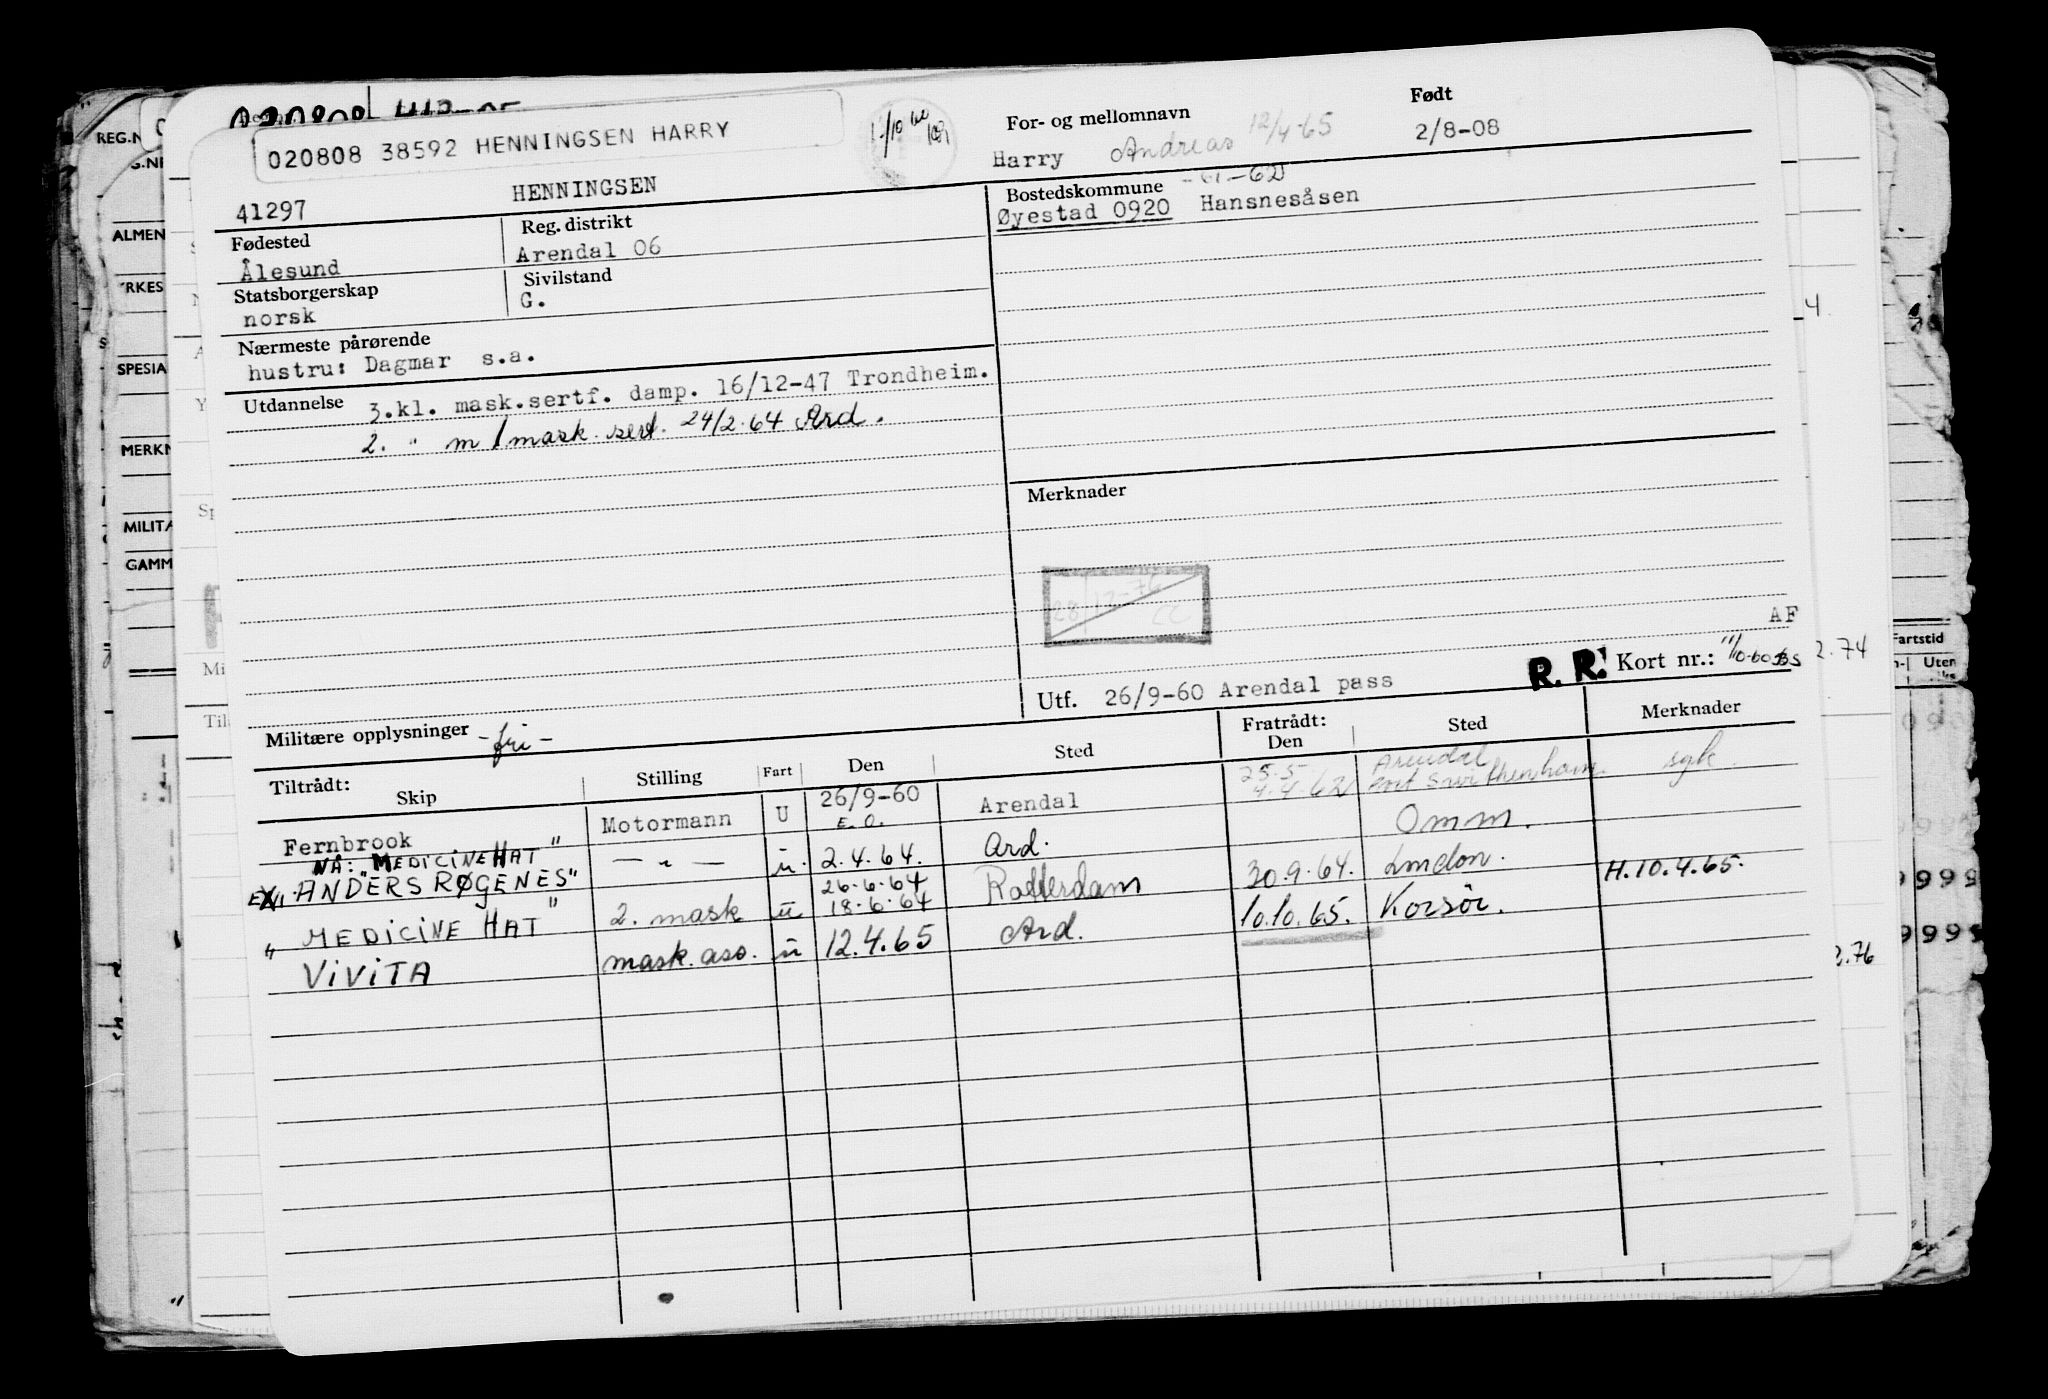 020808
020808 38592 HENNINGSEN HARRY
For- og mellomnavn
Født
Harry Andreas 12/4-65
2/8-08
41297 HENNINGSEN
Bostedskommune
Øyestad 0920 Hansnesåsen
Fødested
Reg. distrikt
Ålesund
Arendal 06
Statsborgerskap
Sivilstand
norsk
G.
Nærmeste pårørende
hustru: Dagmar s.a.
Utdannelse 3.kl. mask.sertf. damp. 16/12-47 Trondheim.
2. " m/mask. sert. 24/2.64 Ard.
Merknader
28/12-76
CC
AF
R. R. Kort nr.:
Utf. 26/9-60 Arendal pass
Militære opplysninger -fri-
Tiltrådt:
Skip
Stilling
Fart
Den
Sted
Fratrådt:
Den
Sted
Merknader
Fernbrook Motormann U 26/9-60 Arendal 4.4.62 syk.
25.5 Arendal
E.O. Omm.
NÅ: "MEDICINE HAT"
EX. "ANDERS RØGENES" — " — u. 2.4.64. Ard.
26.6.64
" MEDICINE HAT" 2. mask u 18.6.64 Rotterdam 30.9.64. London. H.10.4.65.
VIVITA mask. ass. u 12.4.65 Ard. 10.10.65. Korsör.
REG.N
G.NR
ALMEN
YRKES
SPESIA
MERKN
MILITA
GAMM
Sp
Mi
Til
4
2.74
Fartstid
Uten
2.76